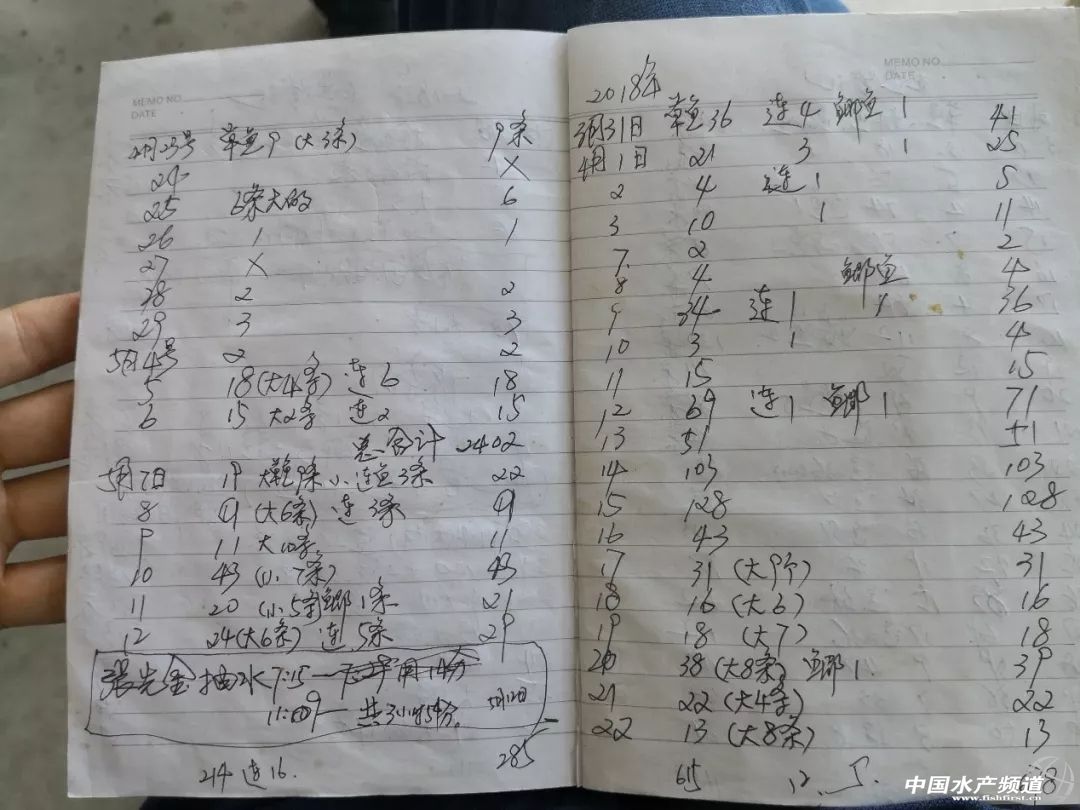 MEMO NO.
DATE
4月23号 草鱼9 (大3条) 9条
24 X
25 6条大的 6
26 1 1
27 X
28 2 2
29 3 3
5月4号 2 2
5 18(大4条) 连6 18
6 15 大2条 连2 15
总合计 2402
5月7日 19 大鲩9条 小连鱼3条 22
8 (大6条) 连3条
9 11 大10条 11
10 43 (小7条) 43
11 20 (小5条) 鲫1条 21
12 24(大6条) 连5条 29
張光金 抽水7:15—
11:09— 共3小时54分。 5月12日
214 连16. 285
MEMO NO.
DATE
2018年
3月31日 草鱼36 连4 鲫鱼1 41
4月1日 21 3 1 25
2 4 连1 5
3 10 1 11
7 2 2
8 4 鲫鱼 4
9 34 连1 1 36
10 3 1 4
11 15 15
12 69 连1 鲫1 71
13 51 51
14 103 103
15 128 128
16 43 43
17 31 (大9个) 31
18 16 (大6) 16
19 18 (大7) 18
20 38 (大8条) 鲫1. 39
21 22 (大4条) 22
22 13 (大8条) 13
615 12. 5.
中国水产频道
www.fishfirst.cn